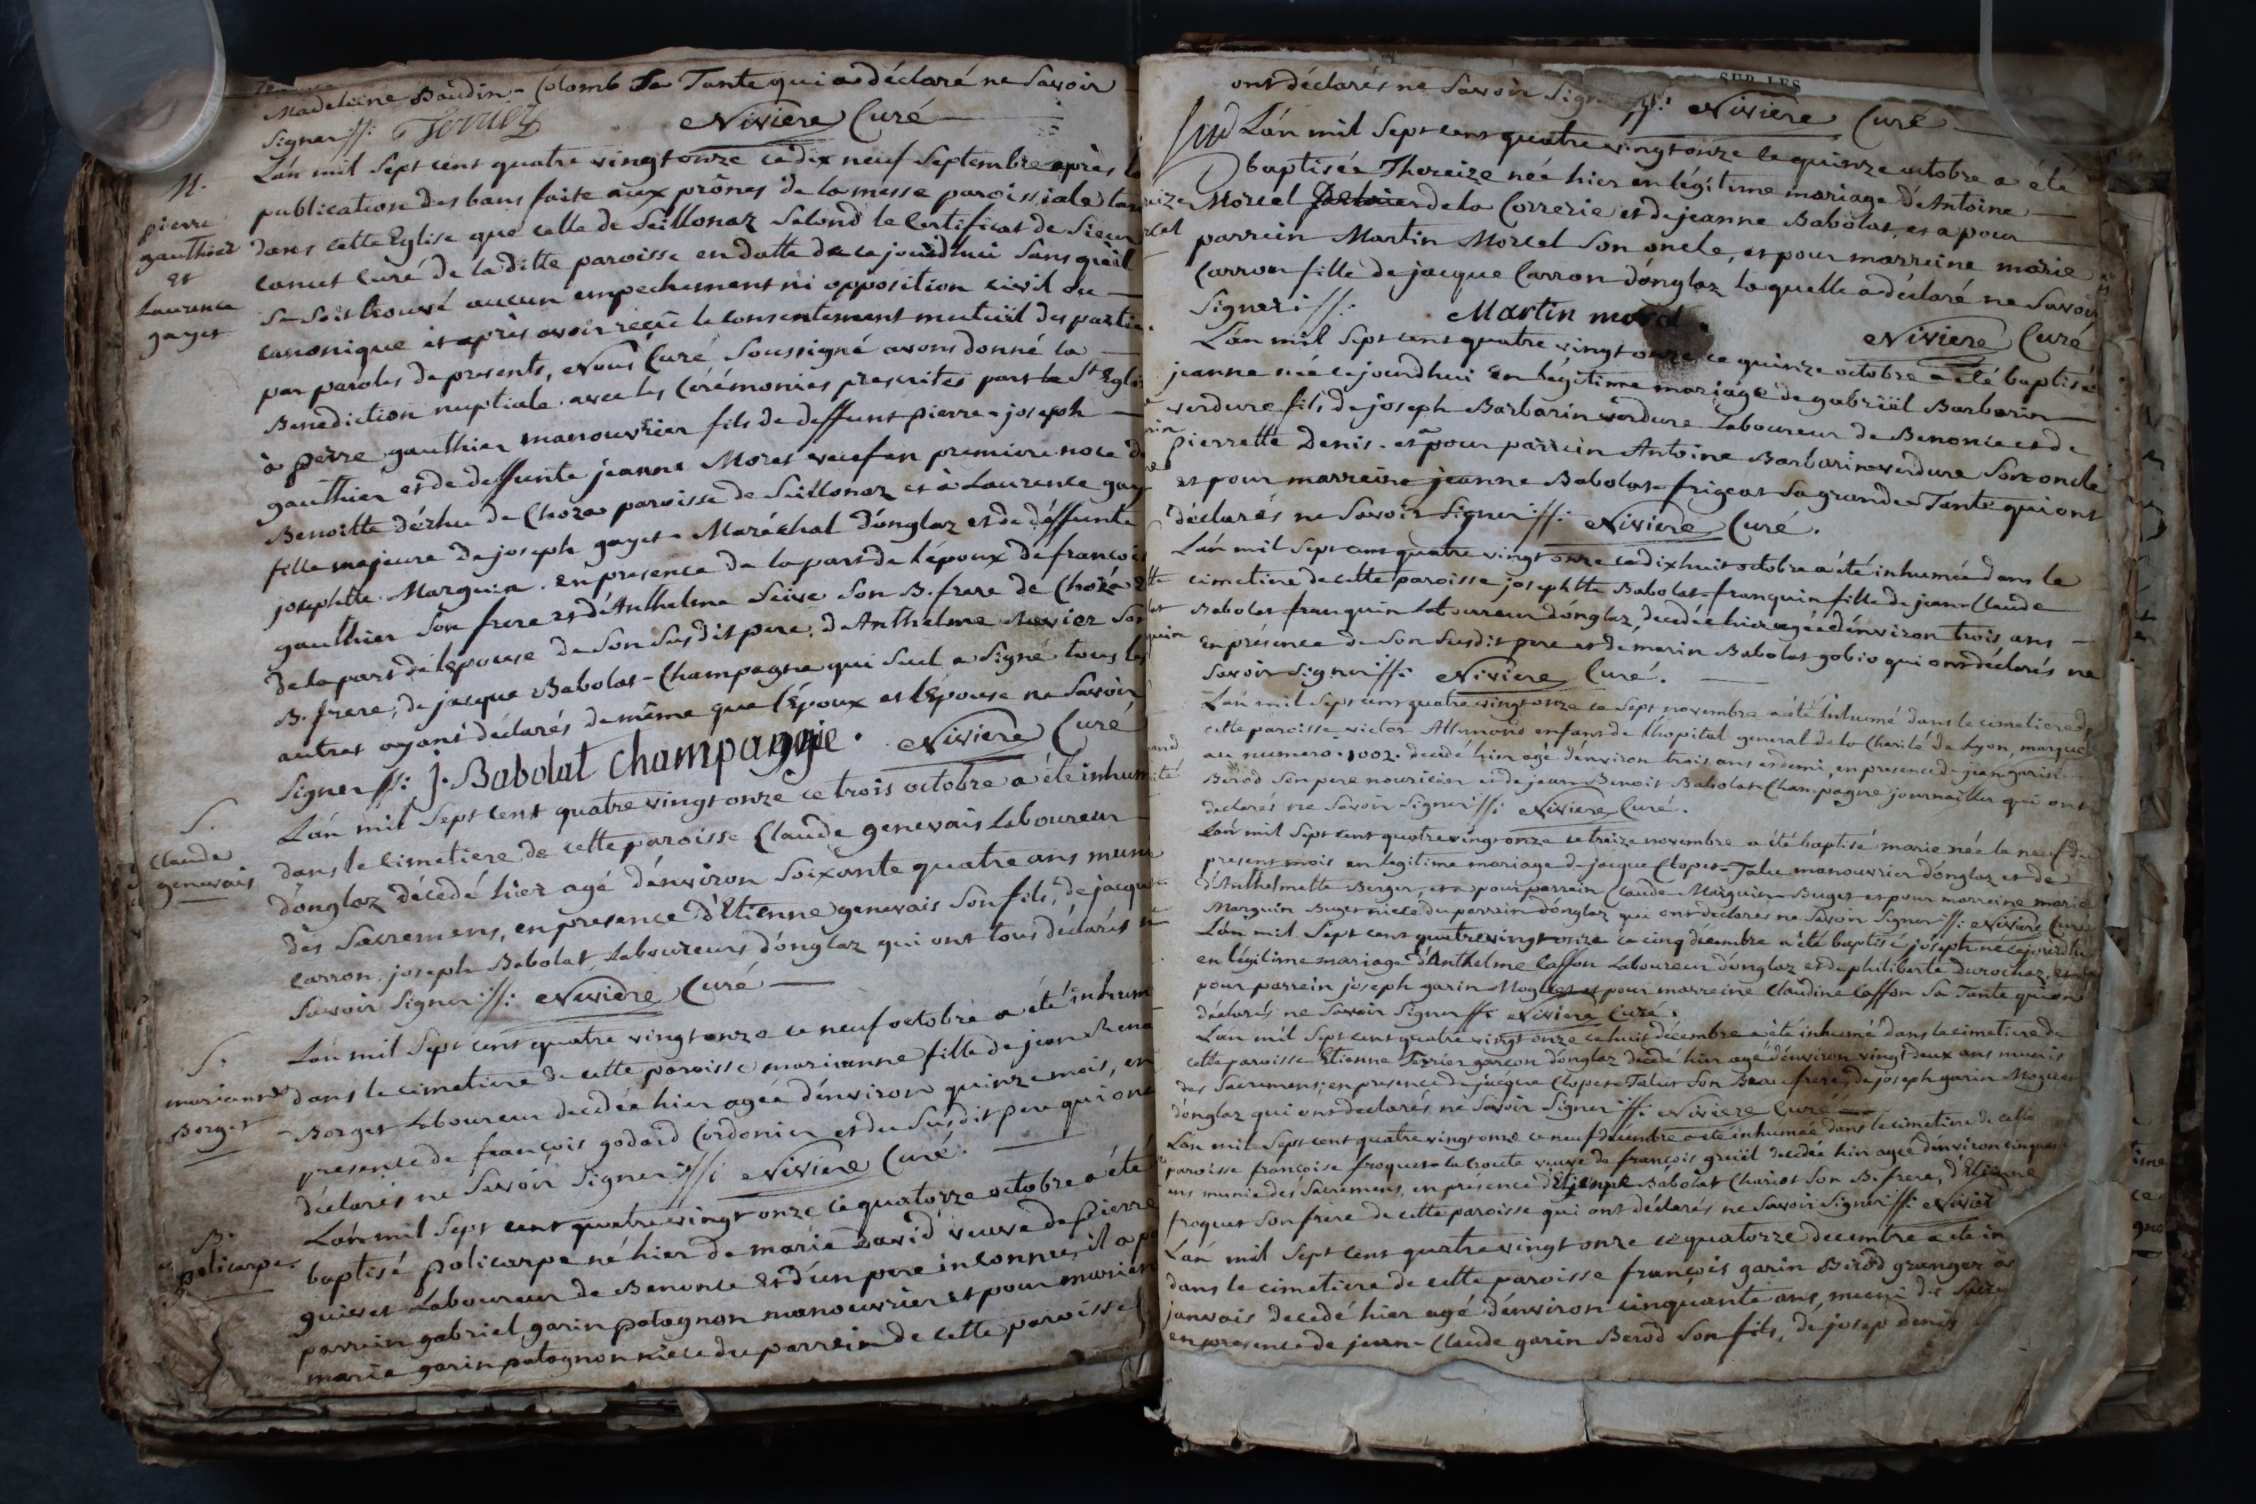 Madeleine Baudin-Colomb Sa Tante qui a déclaré ne Savoir
Signer //: Nivière Curé
N.
pierre
gauthier
et
Laurence
gayet
L'an mil Sept cent quatre vingt onze ce dix neuf Septembre après la
publication des bans faite aux prônes de la messe paroissiale tan
dans cette Eglise que celle de Seillonaz Selond le Certificat de Sieur
canet curé de la ditte paroisse en datte de ce jourdhui Sans qu'il
Se Soit trouvé aucun empechement ni opposition civil ou
canonique et après avoir reçu le consentement mutuel des partie
par paroles de presents, Nous Curé Soussigné avons donné la
Benediction nuptiale avec les Cérémonies prescrites par la Ste Egli
à pierre gauthier manouvrier fils de deffunt pierre-joseph
gauthier et de deffunte jeanne Moret veuf en premiere noce de
Benoitte dézhu de Choza paroisse de Seillonaz et à Laurence gay
fille majeure de joseph gayet Maréchal d'onglaz et de deffunte
josephtte Marguin. En presence de la part de l'époux de françois
gauthier Son frere et d'Anthelme Seive Son B. frere de Choza et
de la part de l'épouse de Son Susdit pere, d'Anthelme Son
B. frere, de jacque Babolat-Champagne qui Seul a Signé tous les
autres ayant déclarés de même que l'époux et l'épouse ne Savoir
Signer //: J. Babolat Champagne. Nivière Curé
S.
Claude
genevais
L'an mil Sept cent quatre vingt onze ce trois octobre a été inhum
dans le cimetiere de cette paroisse Claude genevais Laboureur
d'onglaz décédé hier agé d'environ Soixante quatre ans muni
des Sacremens, en presence d'Etienne genevais Son fils, de jacque
carron, joseph Babolat Laboureurs d'onglaz qui ont tous déclarés n
Savoir Signer //: Nivière Curé
S.
marianne
Berget
L'an mil Sept cent quatre vingt onze ce neuf octobre a été inhum
dans le cimetiere de cette paroisse marianne fille de jean Rena
Berget Laboureur decedée hier agée d'environ quinze mois, en
presence de françois godard Cordonier et du Susdit pere qui ont
déclarés ne Savoir Signer //: Nivière Curé.
B.
policarpe
L'an mil Sept cent quatre vingt onze ce quatorze octobre a été
baptisé policarpe né hier de marie David veuve de pierre
guivet Laboureur de Benonce et d'un pere inconnu, il a po
parrein gabriel garin patagnon manouvrier et pour marien
marie garin patagnon niece du parrein de cette paroisse
ont déclarés ne Savoir Signer //: Nivière Curé
L'an mil Sept cent quatre vingt onze le quinze octobre a été
baptisée Thereize née hier en légitime mariage d'Antoine
Morcel de la Correrie et de jeanne Babolat, et a pour
parrein Martin Morcel Son oncle, et pour marreine marie
Carron fille de jacque Carron d'onglaz laquelle a déclaré ne Savoir
Signer //: Martin morcel. Nivière Curé
L'an mil Sept cent quatre vingt onze ce quinze octobre a été baptisé
jeanne née ce jourdhui En légitime mariage de gabriël Barbarin
verdure fils de joseph Barbarin verdure Laboureur de Benonce et de
pierrette Denis. et a pour parrein Antoine Barbarin verdure Son oncle
et pour marreine jeanne Babolat-frigeat Sa grande Tante qui ont
déclarés ne Savoir Signer //: Nivière Curé.
L'an mil Sept cent quatre vingt onze ce dix huit octobre a été inhumée dans le
cimetiere de cette paroisse josephtte Babolat-franquin fille de jean-Claude
Babolat-franquin Laboureur d'onglaz, decedée hier agée d'environ trois ans
En présence de Son Susdit pere et de marin Babolat gobio qui ont déclarés ne
Savoir Signer //: Nivière Curé.
L'an mil Sept cent quatre vingt onze ce Sept novembre a été inhumé dans le cimetiere de
cette paroisse victor enfant de l'hopital general de la Charité de Lyon, marqué
au numero. 1002. decedé hier agé d'environ trois ans et demi, en presence de jean garin
Berod Son pere nouricier et de jean Benoit Babolat-Champagne journallier qui ont
declarés ne Savoir Signer //: Nivière Curé.
L'an mil Sept cent quatre vingt onze ce treize novembre a été baptisé marie née le neuf du
present mois en légitime mariage de jacque Clopet-Talu manouvrier d'onglaz et de
d'Anthelmette Berger, et a pour parrein Claude Marguin-Buget et pour marreine marie
Marguin Buget niece du parrein d'onglaz qui ont déclarés ne Savoir Signer //: Nivière Curé
L'an mil Sept cent quatre vingt onze ce cinq décembre a été baptisé joseph né ce jourdhui
en légitime mariage d'Anthelme Caffon Laboureur d'onglaz et de philiberte Durochat. et a
pour parrein joseph garin et pour marreine Claudine Caffon Sa Tante qui ont
déclarés ne Savoir Signer //: Nivière Curé.
L'an mil Sept cent quatre vingt onze ce huit décembre a été inhumé dans le cimetiere de
cette paroisse Etienne Terrier garçon d'onglaz decedé hier agé d'environ vingt deux ans muni
des Sacremens; en presence de jacque Clopet-Talut Son Beau frere, de joseph garin
d'onglaz qui ont declarés ne Savoir Signer //: Nivière Curé
L'an mil Sept cent quatre vingt onze ce neuf décembre a été inhumée dans le cimetiere de cette
paroisse françoise froquet-la croute veuve de françois decedée hier agée d'environ cinquante
ans munie des Sacremens, en presence Babolat Chariot Son B. frere, d'Etienne
froquet Son frere de cette paroisse qui ont déclarés ne Savoir Signer //: Nivier
L'an mil Sept cent quatre vingt onze ce quatorze decembre a été in
dans le cimetiere de cette paroisse françois garin Berod granger à
janvais decedé hier agé d'environ cinquante ans, muni des Sacre
en presence de jean-Claude garin Berod Son fils, de josep denis